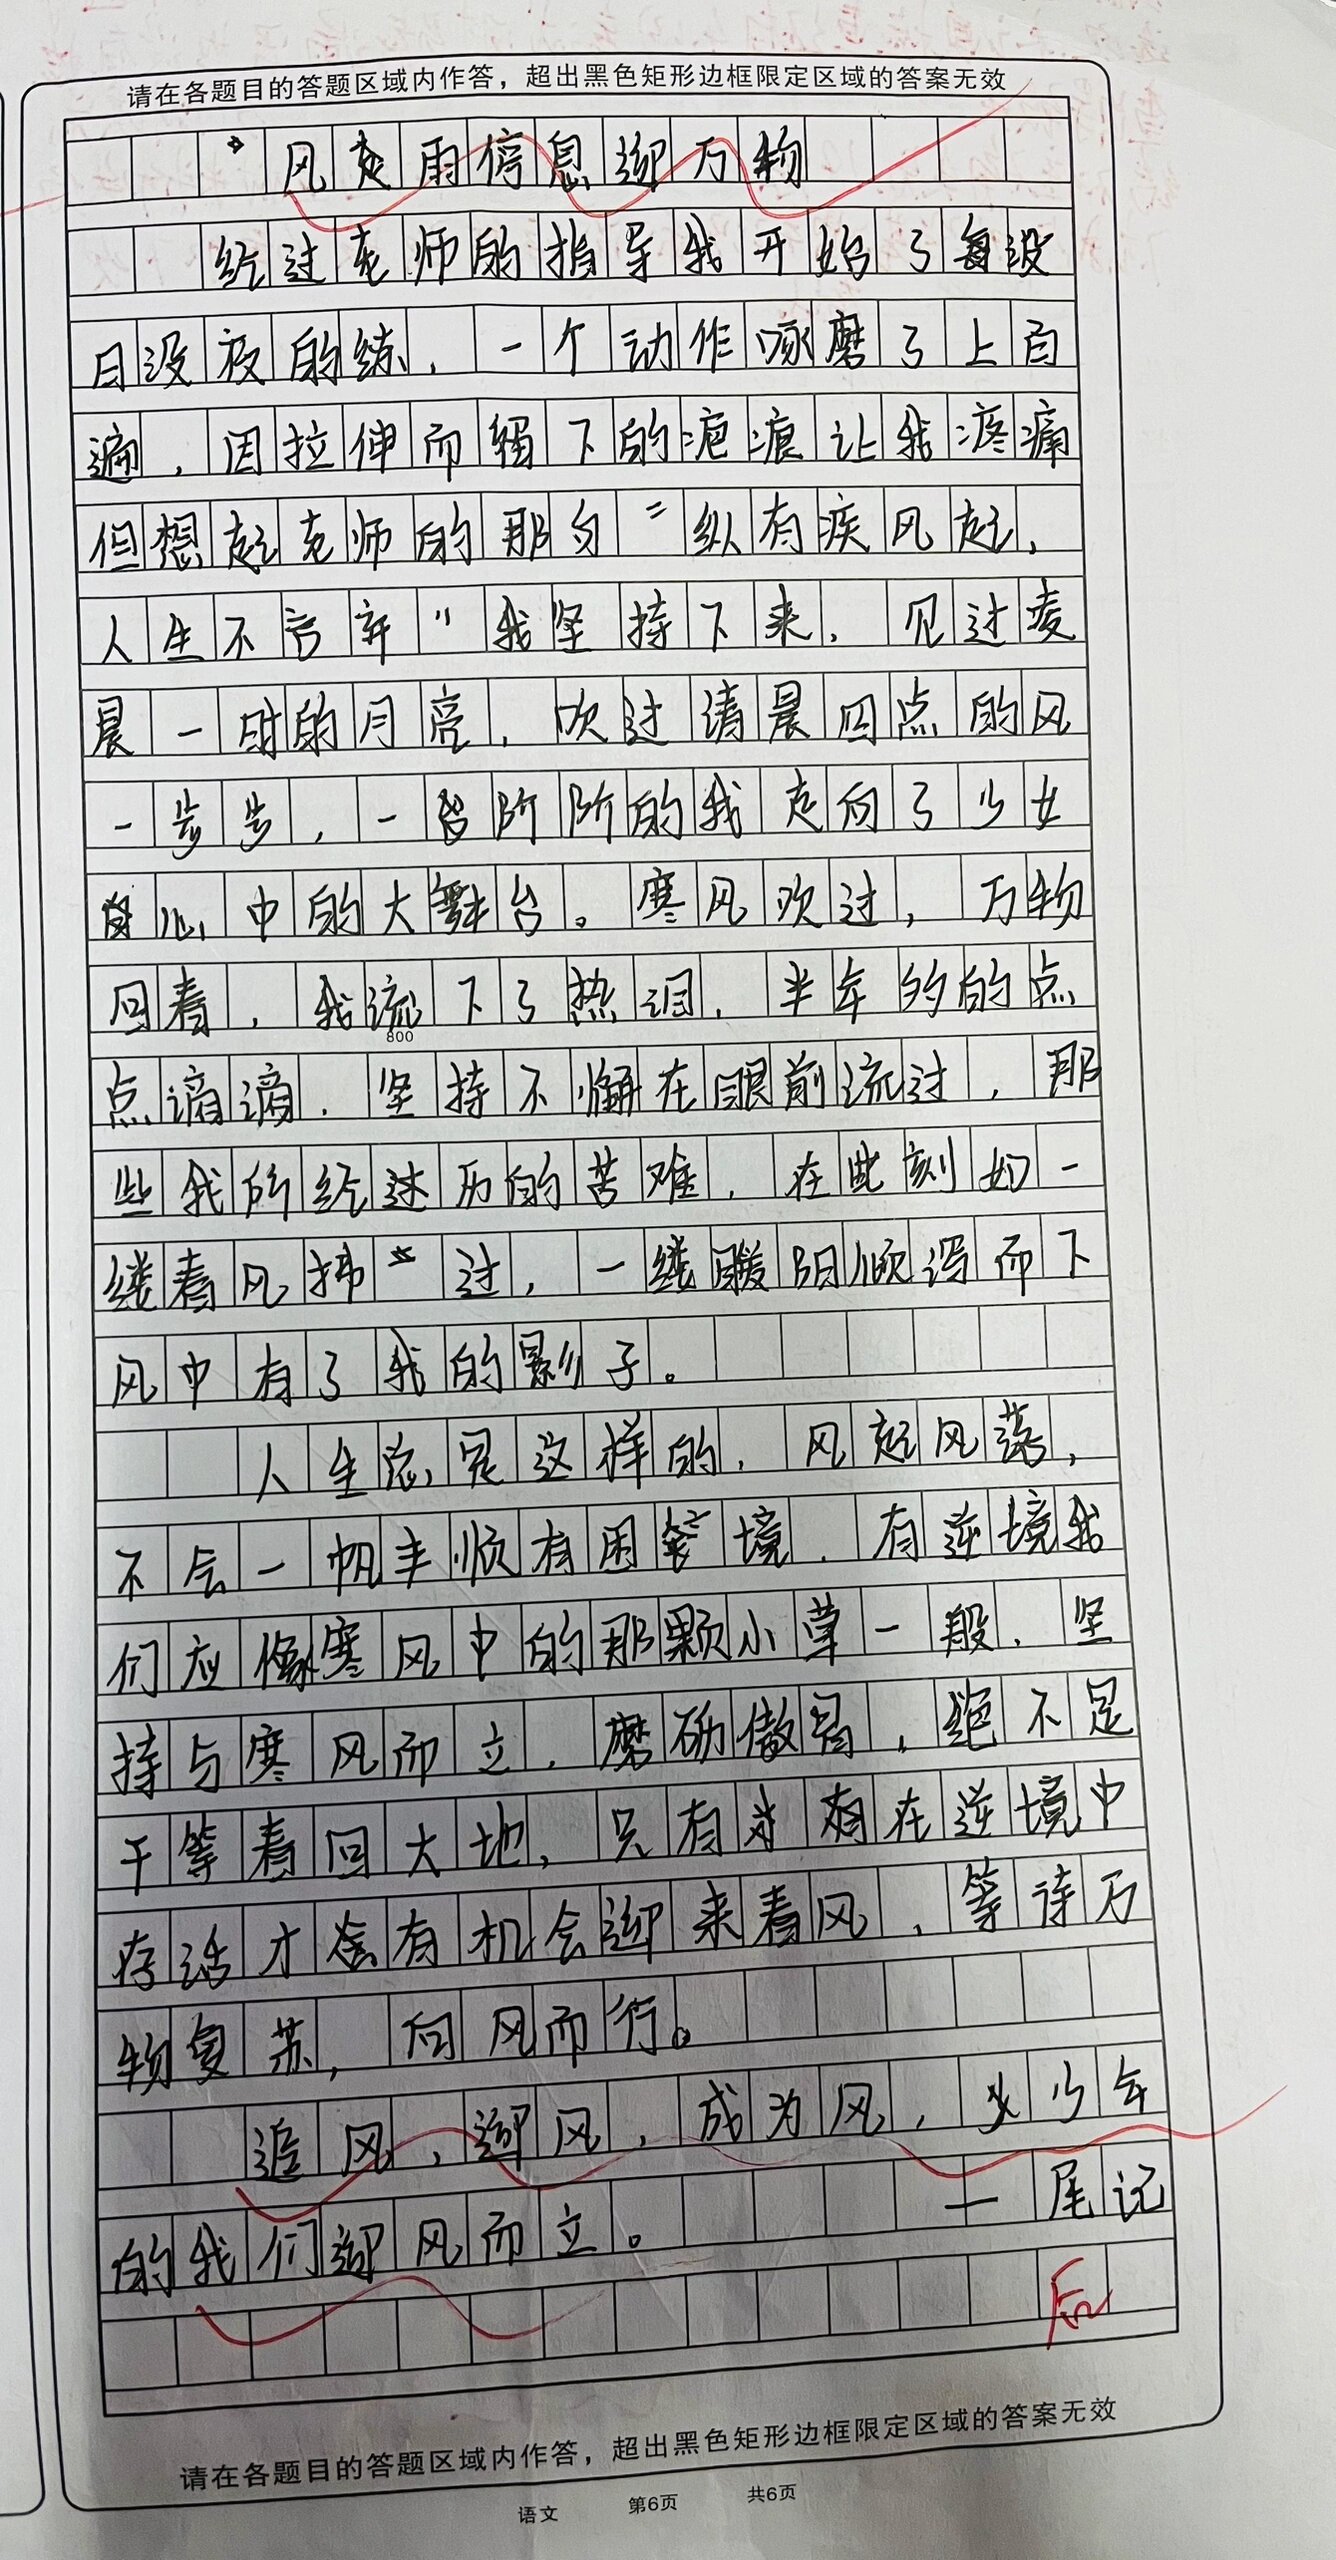 请在各题目的答题区域内作答，超出黑色矩形边框限定区域的答案无效
风走雨停息迎万物
经过老师的指导我开始了每没
日没夜的练，一个动作啄磨了上百
遍，因拉伸而留下的疤痕让我疼痛
但想起老师的那句“纵有疾风起，
人生不言弃”我坚持下来，见过凌
晨一时的月亮，吹过清晨四点的风
一步步，一阶阶的我走向了少女
心中的大舞台。寒风吹过，万物
回春，我流下了热泪，半年的的点
800
点滴滴，坚持不懈在眼前流过，那
些我所经过历的苦难，在此刻如一
缕春风拂过，一缕暖阳倾泻而下
风中有了我的影子。
人生总是这样的，风起风落，
不会一帆丰顺有困境，有逆境我
们应像寒风中的那颗小草一般，坚
持与寒风而立，磨砺傲骨，绝不是
干等春回大地，只有在逆境中
存活才会有机会迎来春风，等待万
物复苏，向风而行。
追风，迎风，成为风，少年
的我们迎风而立。 一尾记
后
请在各题目的答题区域内作答，超出黑色矩形边框限定区域的答案无效
语文 第6页 共6页